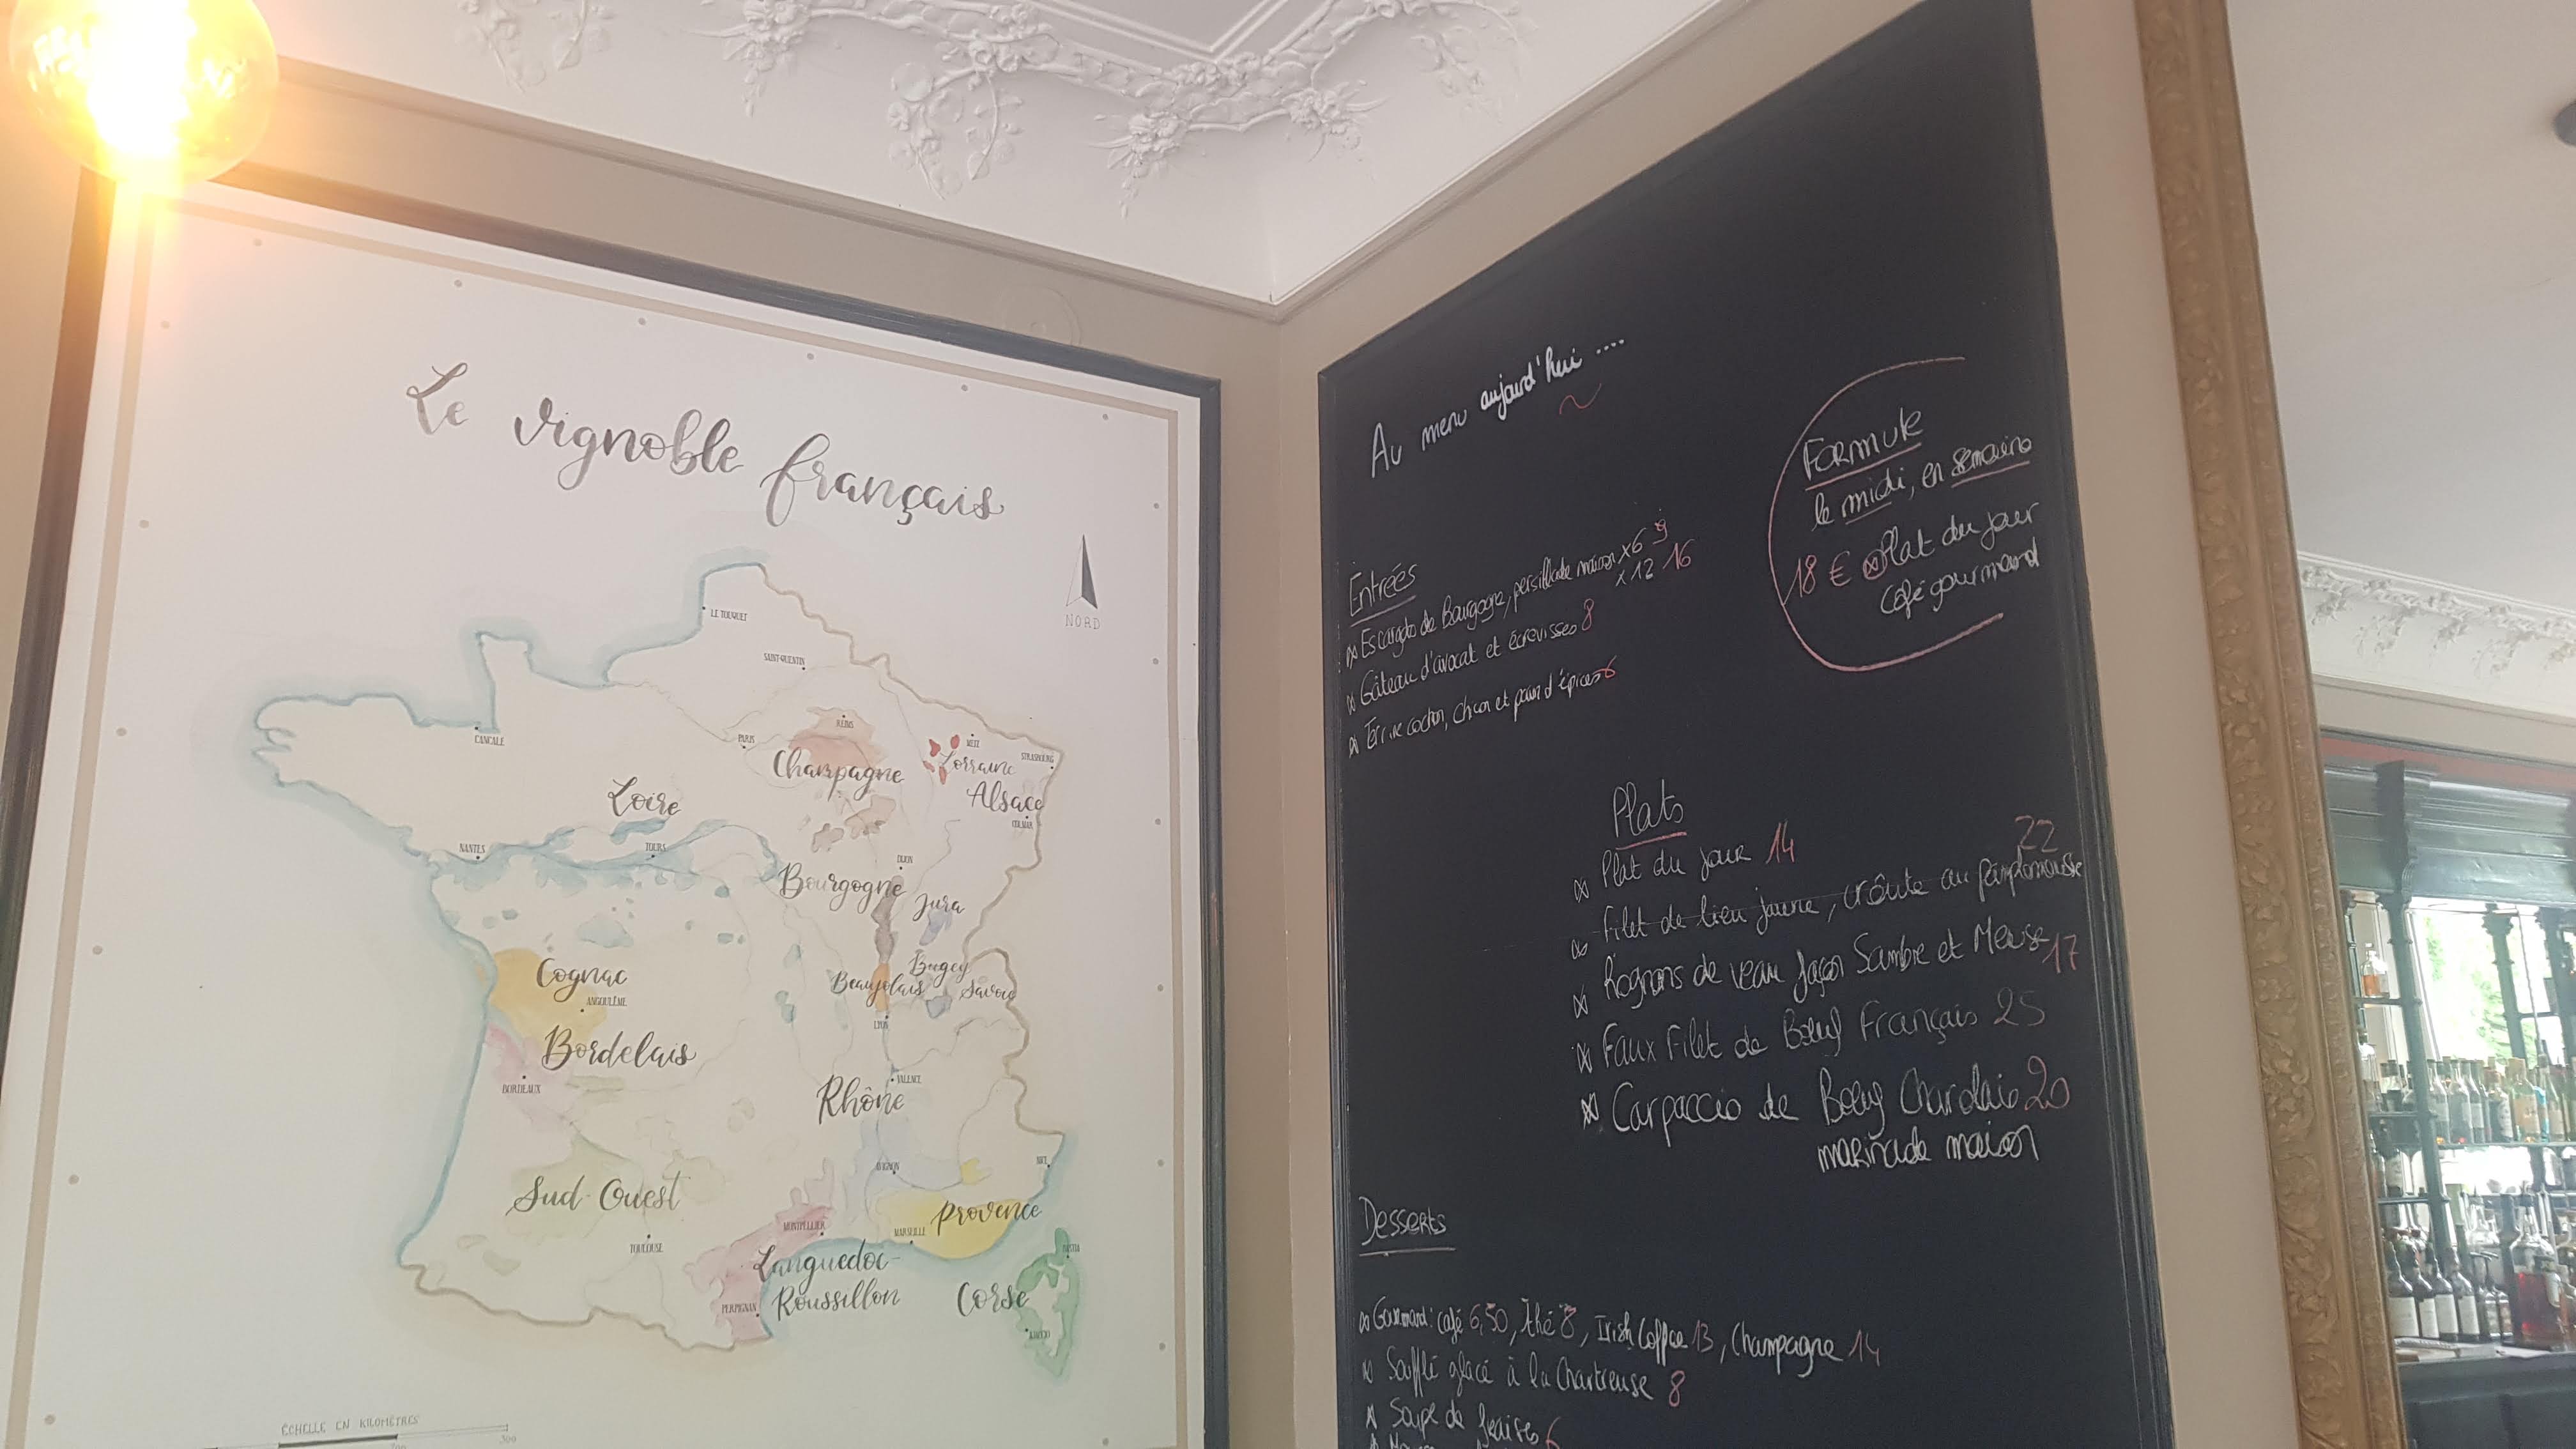 Le vignoble français
NORD
LE TOUQUET
SAINT-QUENTIN
REIMS
PARIS
METZ
STRASBOURG
CANCALE
Champagne
Lorraine
Alsace
COLMAR
Loire
NANTES
TOURS
DIJON
Bourgogne
Jura
Cognac
ANGOULÊME
Bugey
Beaujolais
Savoie
LYON
Bordelais
BORDEAUX
VALENCE
Rhône
AVIGNON
NICE
Sud-Ouest
Provence
MONTPELLIER
MARSEILLE
TOULOUSE
BASTIA
Languedoc-
Roussillon
Corse
PERPIGNAN
AJACCIO
ÉCHELLE EN KILOMÈTRES
300
Au menu aujourd'hui ....
Formule
le midi, en semaine
18 € Plat du jour
Café gourmand
Entrées
Escargots de Bourgogne, persillade maison x6 9
x12 16
Gâteau d'avocat et écrevisses 8
Terrine cochon, et pain d'épices 6
Plats
Plat du jour 14
22
Filet de lieu jaune, croûte au pamplemousse
Rognons de veau façon Sambre et Meuse 17
Faux Filet de Boeuf Français 25
Carpaccio de Boeuf Charolais 20
marinade maison
Desserts
Gourmand: café 6,50, thé 8, Irish Coffee 13, Champagne 14
Soufflé glacé à la Chartreuse 8
Soupe de fraises 6